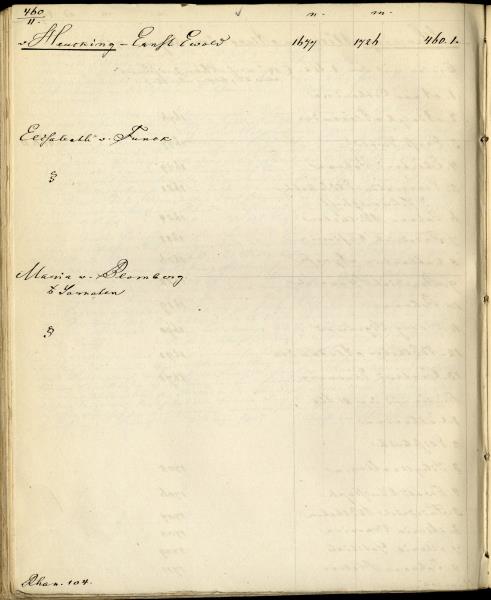 460.
II.
n. m.
v. Heucking - Ernst Ewald 1677 1726 460.1.
Elisabeth v. Funck
§
Maria v. Blomberg
z. Sernaten
§
Rhan. 104.